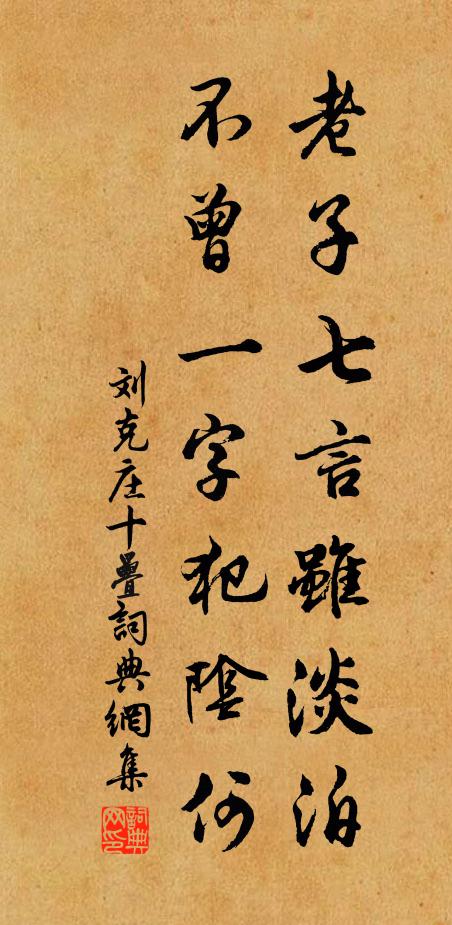 老子七言雖淡泊
不曾一字犯陰何
刘克庄十疊詞典網集
詞典網印